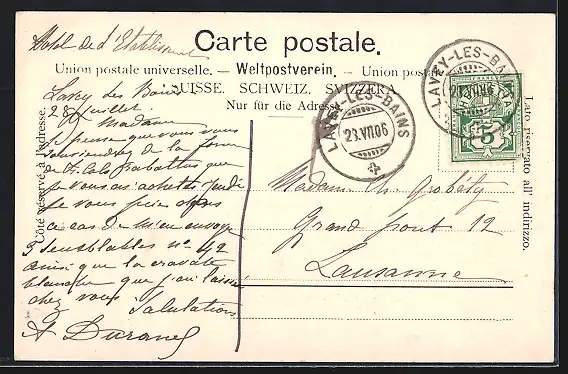 Hotel de d'Etablissement
Carte postale.
Union postale universelle. — Weltpostverein. — Union postale
SUISSE. SCHWEIZ. SVIZZERA.
Nur für die Adresse
Côté réservé à l'adresse.
Lato riservato all' indirizzo.
LAVEY-LES-BAINS
23.VII.06
LAVEY-LES-BAINS
5
Lavey les Bains
28 Juillet
Madame
Je pense que vous vous
souviendrez de la forme
de Cols rabattus que
je vous ai achetés jeudi
Je vous prie
ce cas de m'en envoyer
5 semblables no 42
ainsi que la cravate
blanche que j'ai laissée
chez vous
Salutations
A Durand
Madame Ch. Grobéty
Grand pont 12
Lausanne